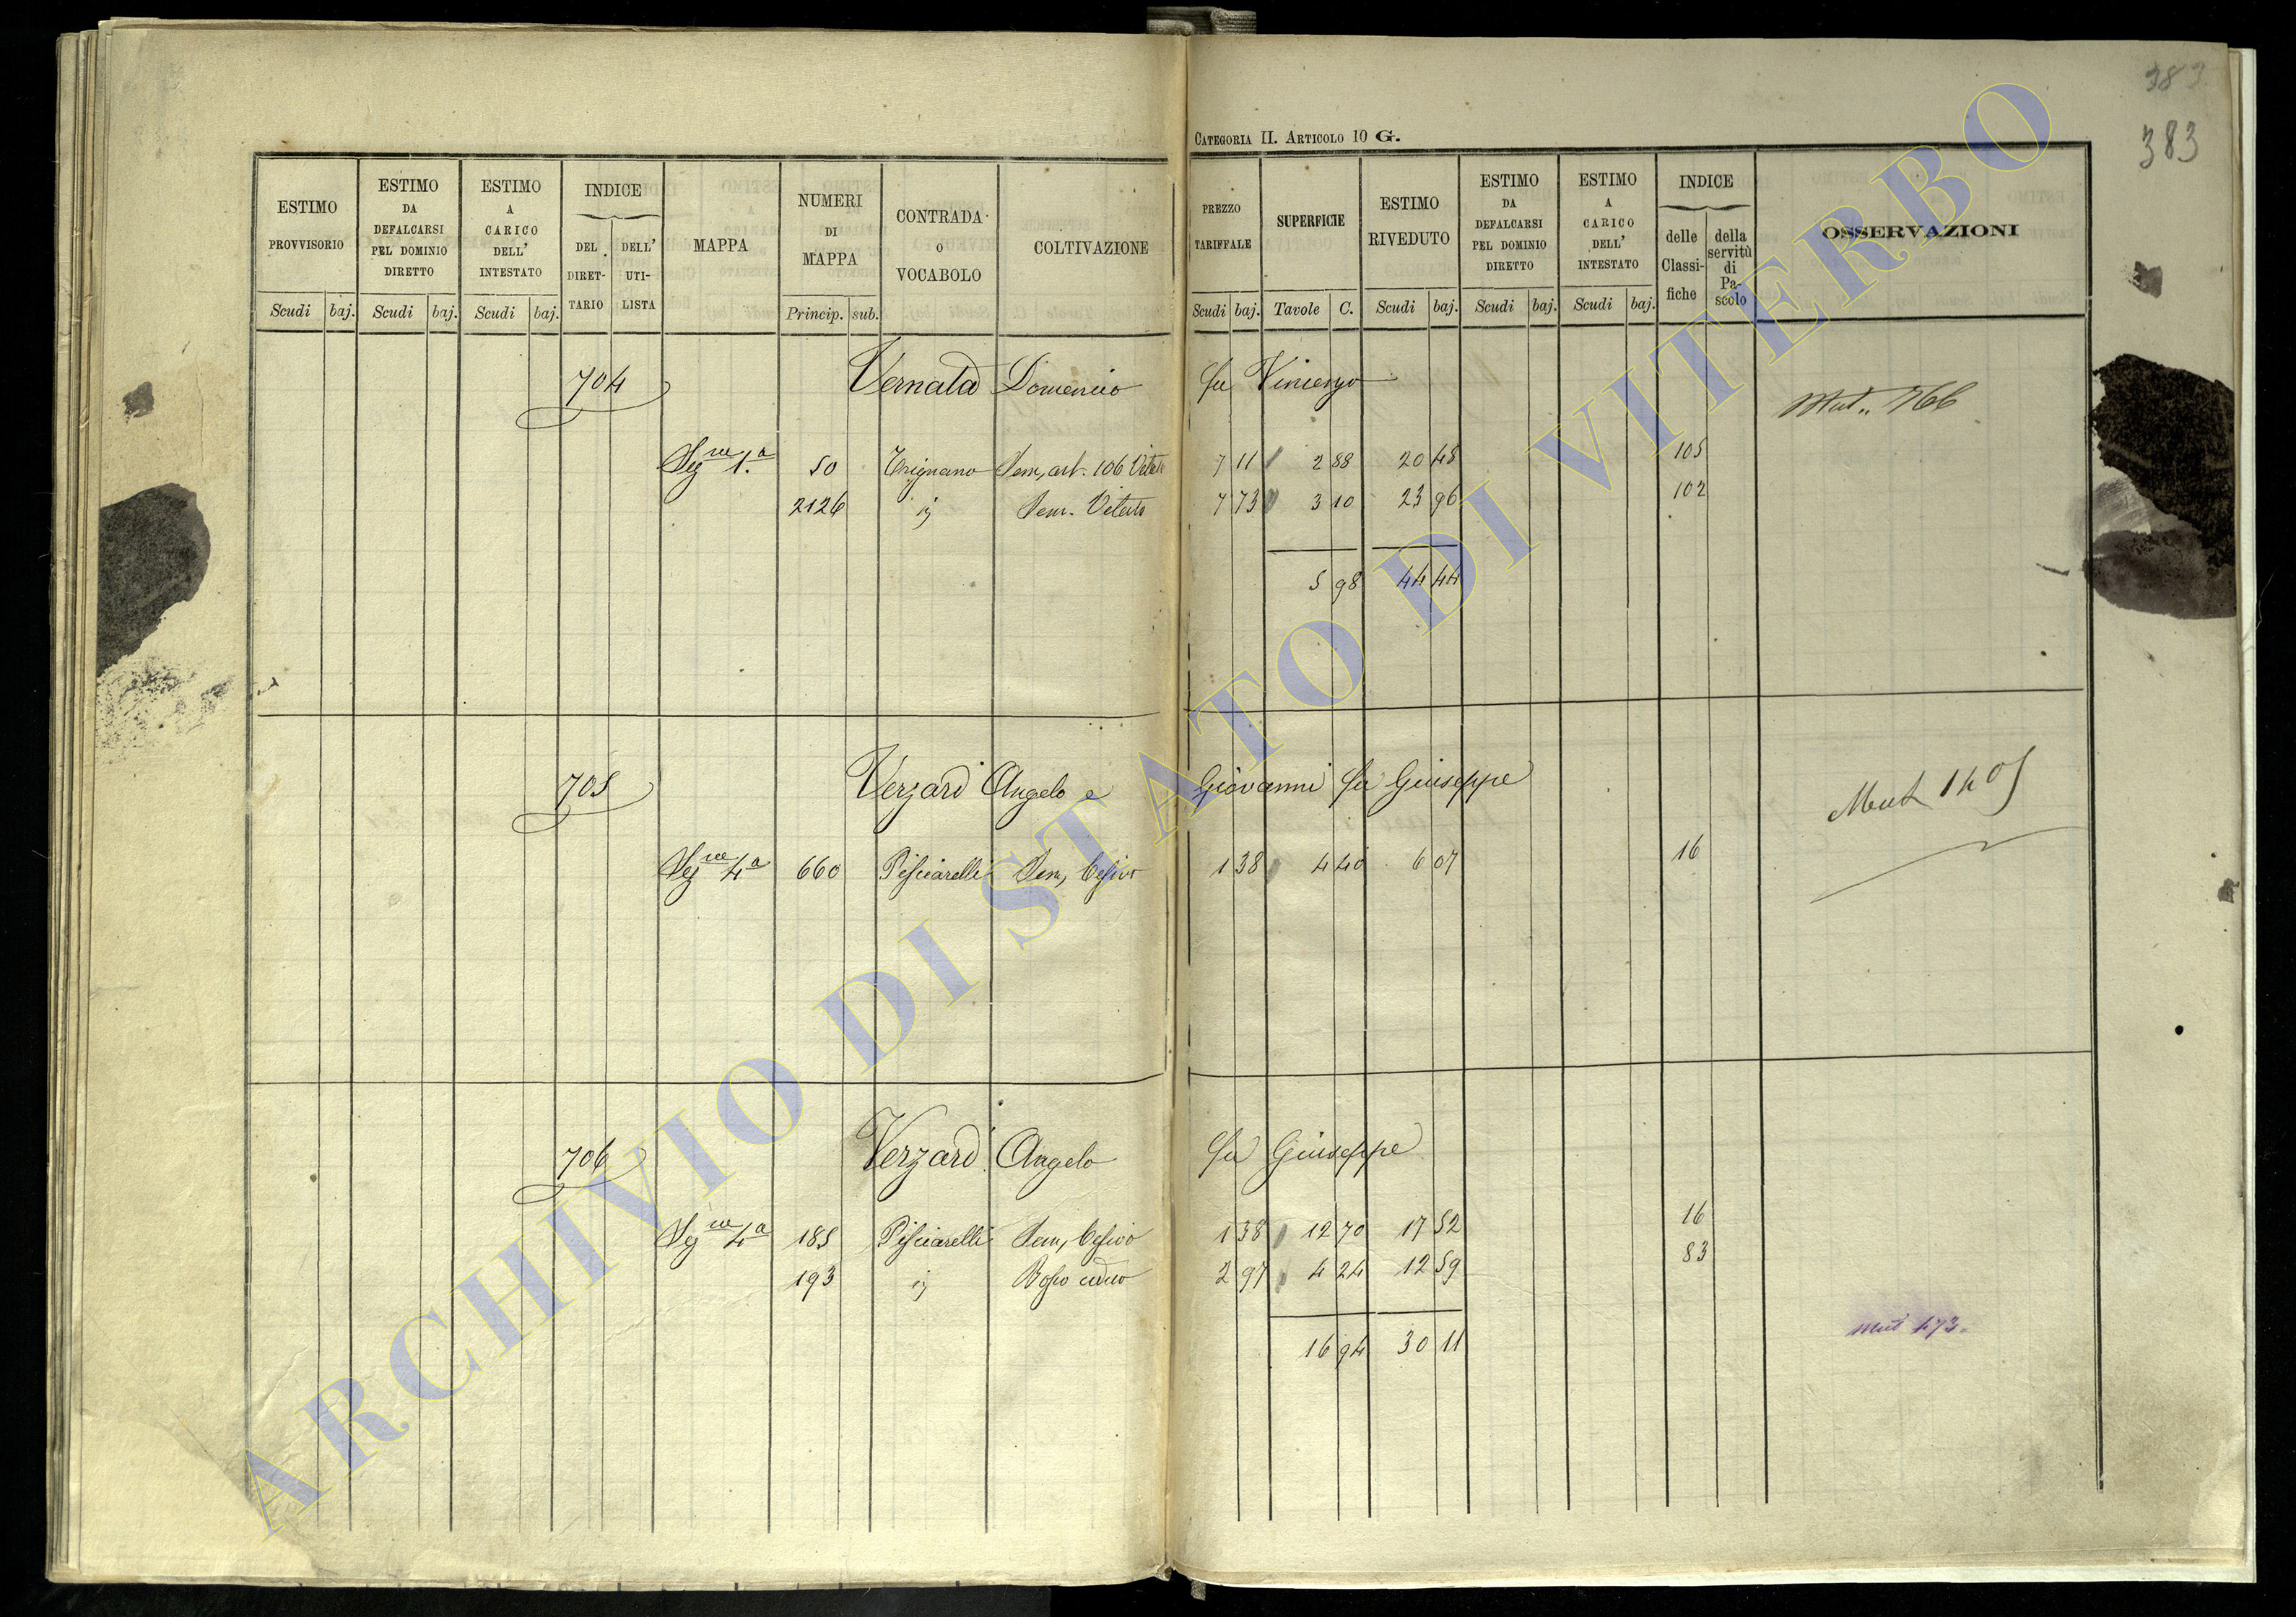 383
383
CATEGORIA II. ARTICOLO 10 G.
ESTIMO PROVVISORIO
ESTIMO DA DEFALCARSI PEL DOMINIO DIRETTO
ESTIMO A CARICO DELL' INTESTATO
INDICE
DEL DIRET-TARIO
DELL' UTI-LISTA
MAPPA
NUMERI DI MAPPA
CONTRADA o VOCABOLO
COLTIVAZIONE
PREZZO TARIFFALE
SUPERFICIE
ESTIMO RIVEDUTO
ESTIMO DA DEFALCARSI PEL DOMINIO DIRETTO
ESTIMO A CARICO DELL' INTESTATO
INDICE
delle Classi-fiche
della servitù di Pa-scolo
OSSERVAZIONI
Scudi baj. Scudi baj. Scudi baj. Princip. sub. Scudi baj. Tavole C. Scudi baj. Scudi baj. Scudi baj.
704 Vernata Domenico fu Vincenzo Mut.. 766
Segne 1a 50 Trignano Sem, art. 106 Vitato 7 11 2 88 20 48 105
2126 ij Sem. Vitato 7 73 3 10 23 96 102
5 98 44 44
705 Verzari Angelo e Giovanni fu Giuseppe Mut 1405
Segne 4a 660 Pisciarelli Sem, Cesivo 1 38 4 40 6 07 16
706 Verzari Angelo fu Giuseppe
Segne 4a 185 Pisciarelli Sem, Cesivo 1 38 12 70 17 52 16
193 ij Bosco ceduo 2 97 4 24 12 59 83
16 94 30 11
Mut 173.
ARCHIVIO DI STATO DI VITERBO